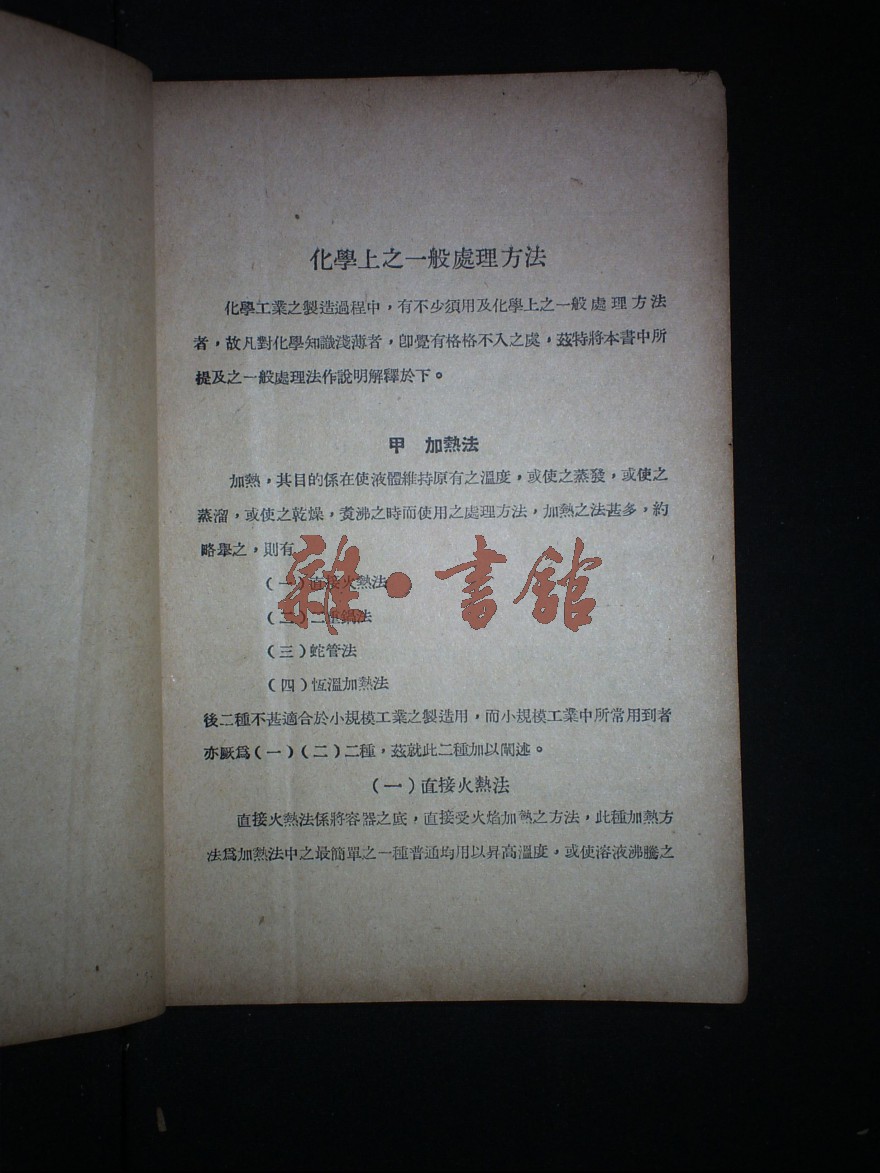 化學上之一般處理方法
化學工業之製造過程中，有不少須用及化學上之一般處理方法
者，故凡對化學知識淺薄者，卽覺有格格不入之處，茲特將本書中所
提及之一般處理法作說明解釋於下。
甲　加熱法
加熱，其目的係在使液體維持原有之溫度，或使之蒸發，或使之
蒸溜，或使之乾燥，煑沸之時而使用之處理方法，加熱之法甚多，約
略舉之，則有
（一）直接火熱法
（二）二重鍋法
雜·書館
（三）蛇管法
（四）恆溫加熱法
後二種不甚適合於小規模工業之製造用，而小規模工業中所常用到者
亦厥爲（一）（二）二種，茲就此二種加以闡述。
（一）直接火熱法
直接火熱法係將容器之底，直接受火焰加熱之方法，此種加熱方
法爲加熱法中之最簡單之一種普通均用以昇高溫度，或使溶液沸騰之